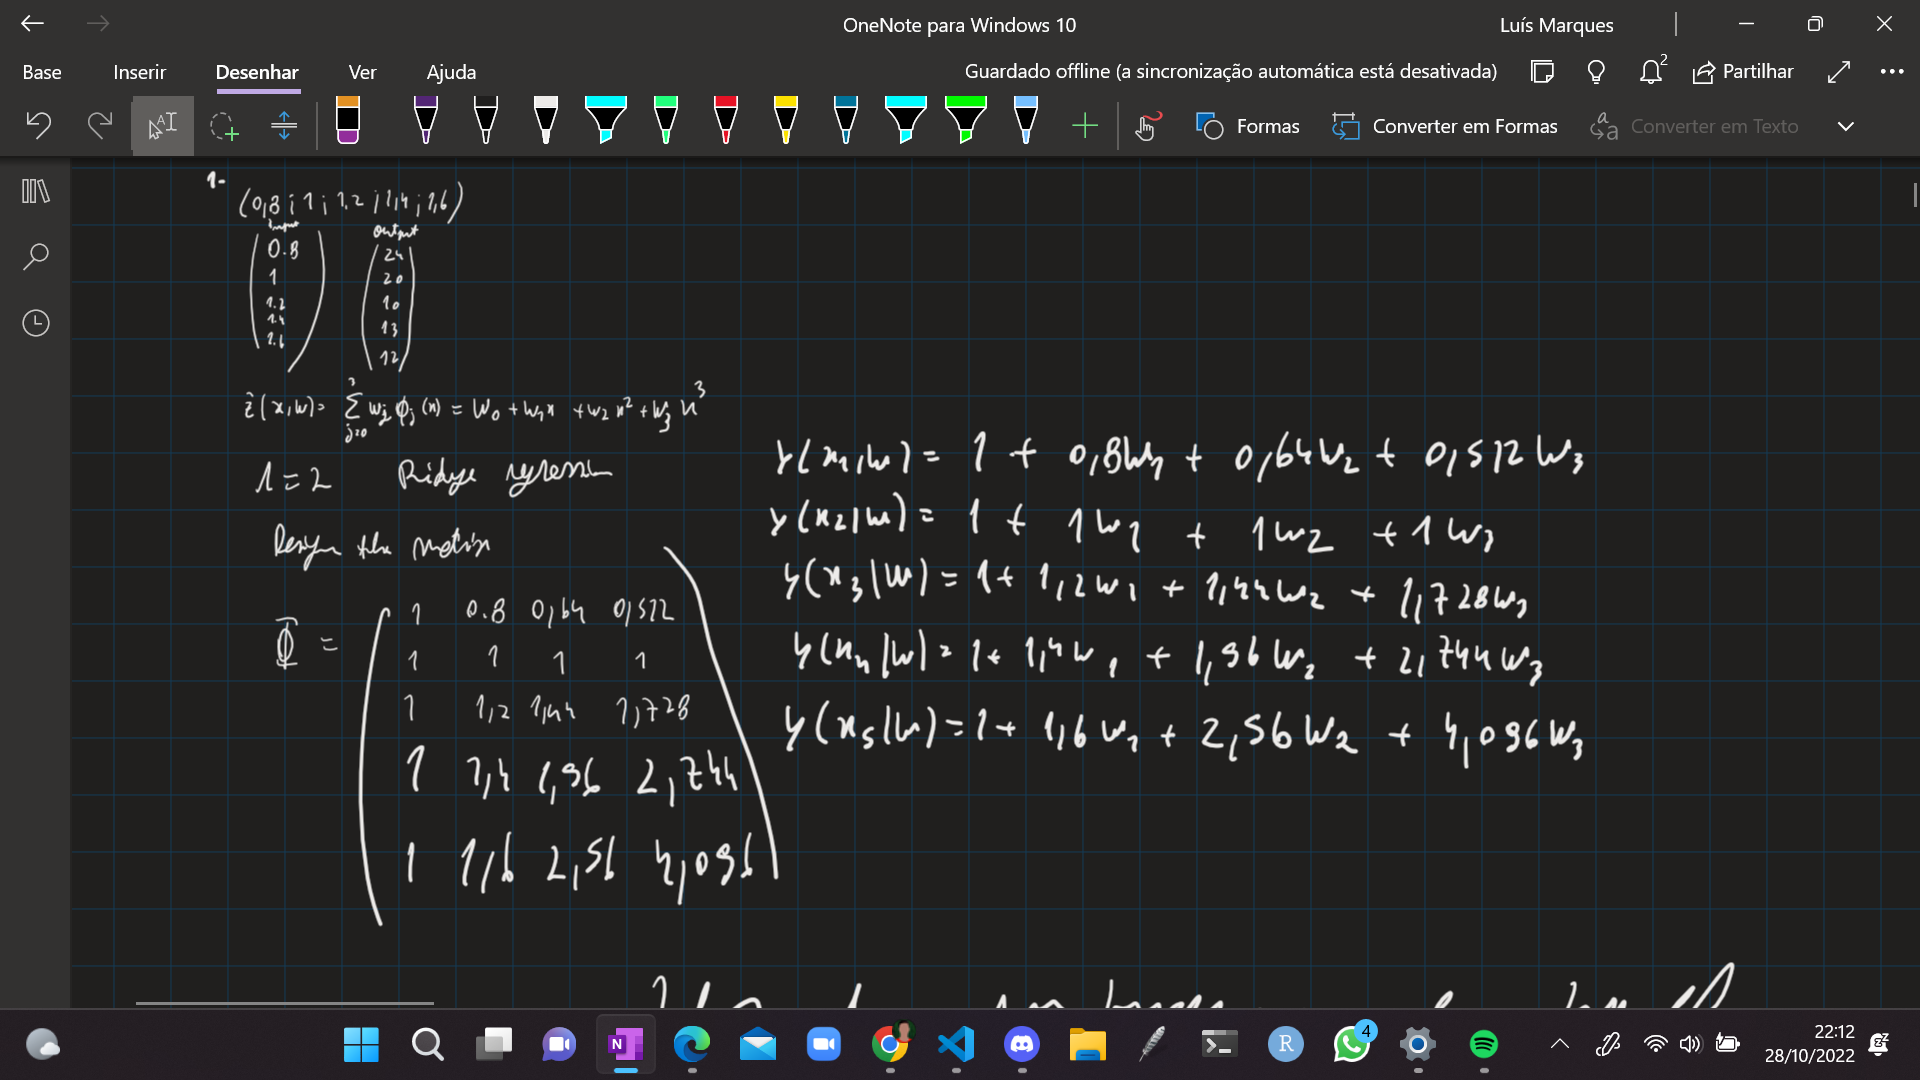 OneNote para Windows 10
Luís Marques
Base Inserir Desenhar Ver Ajuda
Guardado offline (a sincronização automática está desativada)
2
Partilhar
Formas
Converter em Formas
Converter em Texto
1-
(0,8 ; 1 ; 1.2 ; 1,4 ; 1,6)
input output
0.8 24
1 20
1.2 10
1.4 13
1.6 12
ẑ(x,w) = ∑ j=0 3 wj ϕj(x) = w0 + w1x + w2x² + w3x³
λ=2 Ridge regression
Design the matrix
Φ =
1 0.8 0,64 0,512
1 1 1 1
1 1,2 1,44 1,728
1 1,4 1,96 2,744
1 1,6 2,56 4,096
y(x1,w) = 1 + 0,8w1 + 0,64w2 + 0,512w3
y(x2,w) = 1 + 1w1 + 1w2 + 1w3
y(x3,w) = 1 + 1,2w1 + 1,44w2 + 1,728w3
y(x4,w) = 1 + 1,4w1 + 1,96w2 + 2,744w3
y(x5,w) = 1 + 1,6w1 + 2,56w2 + 4,096w3
4
22:12
28/10/2022